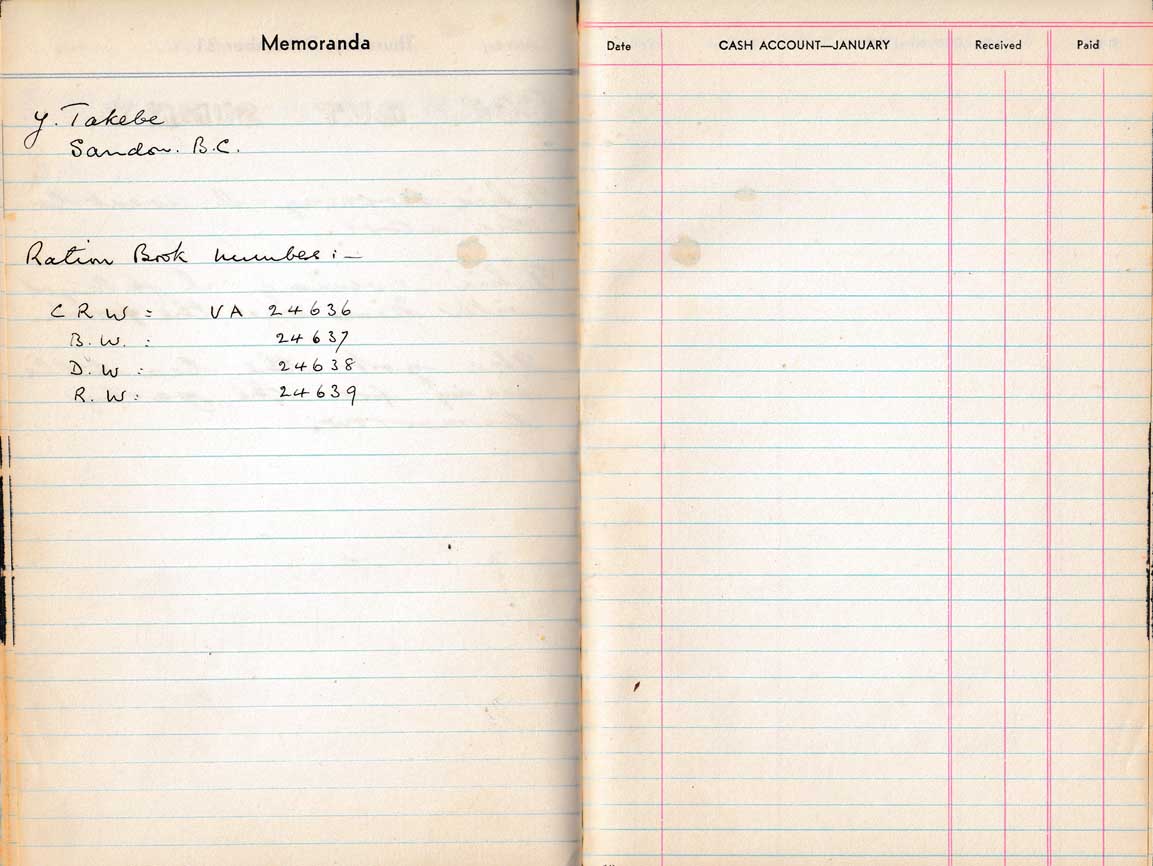 Memoranda
Y. Takebe
Sandon. B.C.
Ration Book number :-
C R W : VA 24636
B. W. : 24637
D. W : 24638
R. W : 24639
Date CASH ACCOUNT—JANUARY Received Paid